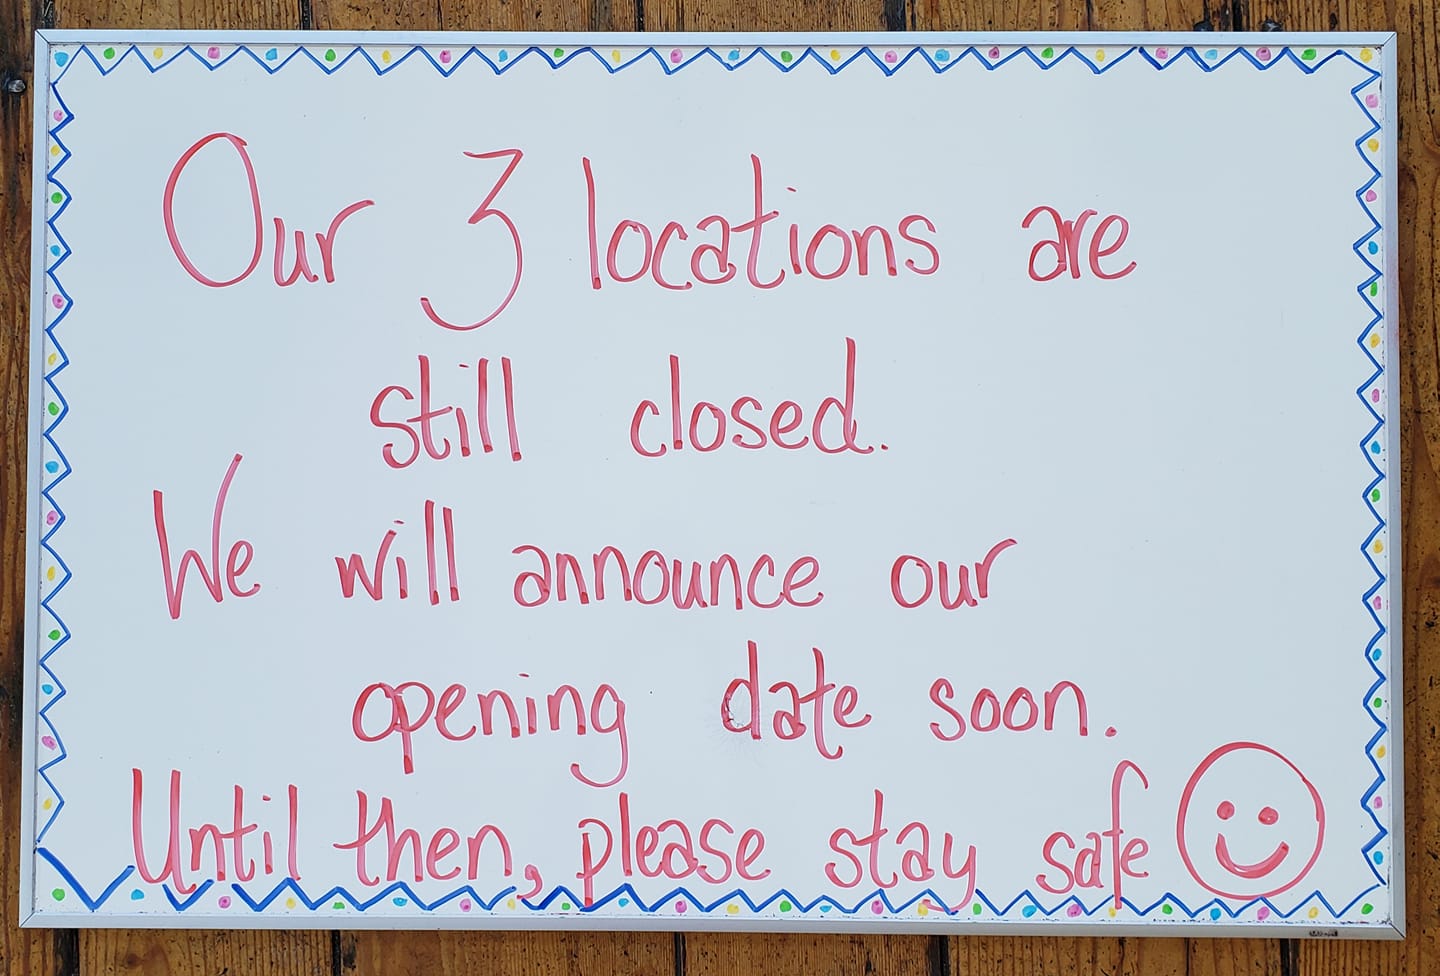 Our 3 locations are
still closed.
We will announce our
opening date soon.
Until then, please stay safe